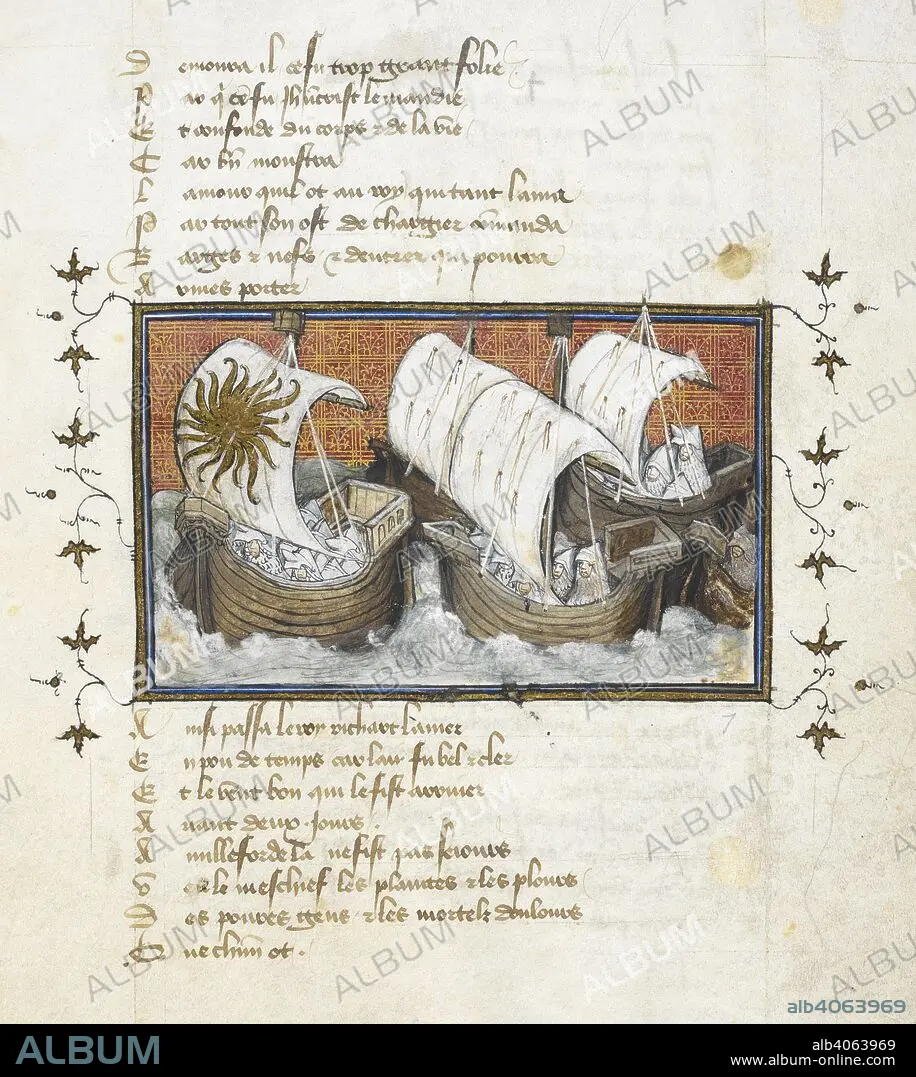 D emoura il ce fu trop grant folie
P ar q̄ ce fu Jhūcrist le maudie
E t confonde du corps & de la vie
C ar bn̄ monstra
L amour quil ot au roy qui tant lama
P ar tout son ost de chargier cōmanda
B arges & nefs & dentrer qui pourra
A rmes porter
A insi passa le roy richart la mer
E n pou de temps car lair fu bel & cler
E t le vent bon qui le fist arriver
A vant deux jours
A milleforde la ne fist pas sejours
V eu le meschief les plaintes & les plours
D es povres gens & les mortelz doulours
Q ue chūn ot .
ALBUM
alb4063969
ALBUM
alb4063969
www.album-online.com